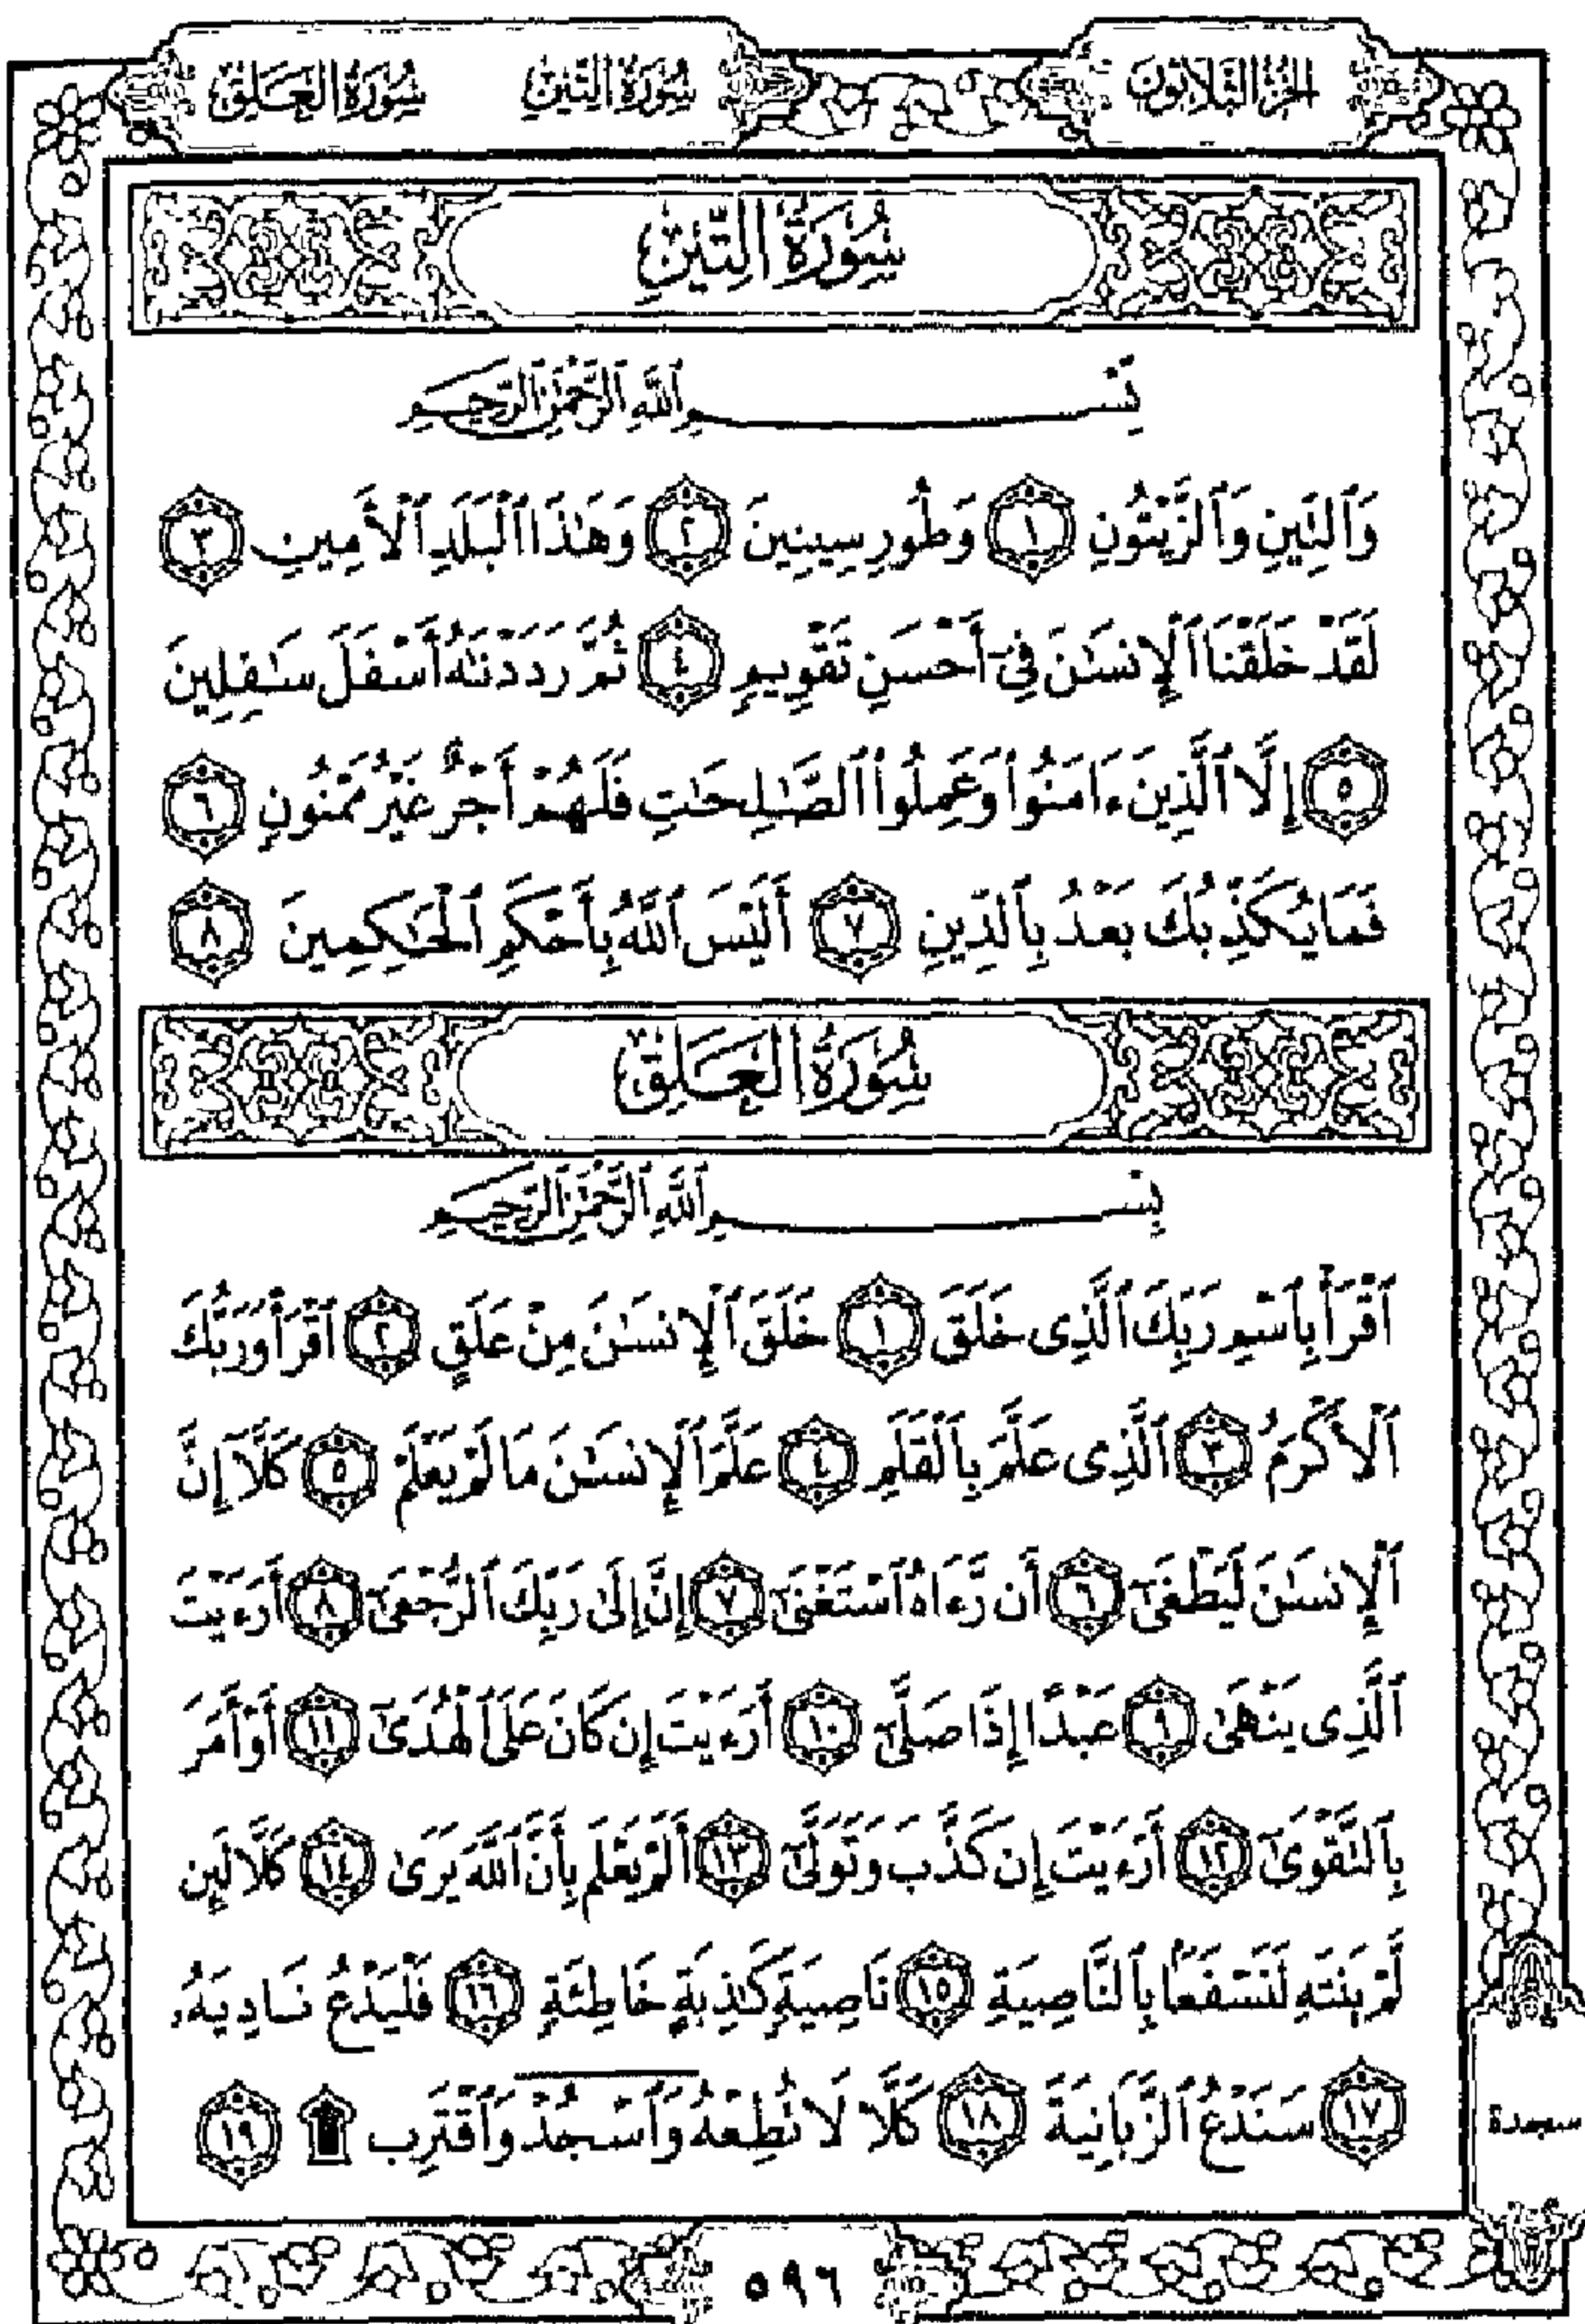 الجزء الثلاثون
سورة التين سورة العلق
سُورَةُ التِّينِ
بِسْمِ ٱللَّهِ ٱلرَّحْمَٰنِ ٱلرَّحِيمِ
وَٱلتِّينِ وَٱلزَّيْتُونِ ١ وَطُورِ سِينِينَ ٢ وَهَٰذَا ٱلْبَلَدِ ٱلْأَمِينِ ٣
لَقَدْ خَلَقْنَا ٱلْإِنسَٰنَ فِىٓ أَحْسَنِ تَقْوِيمٍ ٤ ثُمَّ رَدَدْنَٰهُ أَسْفَلَ سَٰفِلِينَ
٥ إِلَّا ٱلَّذِينَ ءَامَنُوا۟ وَعَمِلُوا۟ ٱلصَّٰلِحَٰتِ فَلَهُمْ أَجْرٌ غَيْرُ مَمْنُونٍ ٦
فَمَا يُكَذِّبُكَ بَعْدُ بِٱلدِّينِ ٧ أَلَيْسَ ٱللَّهُ بِأَحْكَمِ ٱلْحَٰكِمِينَ ٨
سُورَةُ الْعَلَقِ
بِسْمِ ٱللَّهِ ٱلرَّحْمَٰنِ ٱلرَّحِيمِ
ٱقْرَأْ بِٱسْمِ رَبِّكَ ٱلَّذِى خَلَقَ ١ خَلَقَ ٱلْإِنسَٰنَ مِنْ عَلَقٍ ٢ ٱقْرَأْ وَرَبُّكَ
ٱلْأَكْرَمُ ٣ ٱلَّذِى عَلَّمَ بِٱلْقَلَمِ ٤ عَلَّمَ ٱلْإِنسَٰنَ مَا لَمْ يَعْلَمْ ٥ كَلَّآ إِنَّ
ٱلْإِنسَٰنَ لَيَطْغَىٰٓ ٦ أَن رَّءَاهُ ٱسْتَغْنَىٰٓ ٧ إِنَّ إِلَىٰ رَبِّكَ ٱلرُّجْعَىٰٓ ٨ أَرَءَيْتَ
ٱلَّذِى يَنْهَىٰ ٩ عَبْدًا إِذَا صَلَّىٰٓ ١٠ أَرَءَيْتَ إِن كَانَ عَلَى ٱلْهُدَىٰٓ ١١ أَوْ أَمَرَ
بِٱلتَّقْوَىٰٓ ١٢ أَرَءَيْتَ إِن كَذَّبَ وَتَوَلَّىٰٓ ١٣ أَلَمْ يَعْلَم بِأَنَّ ٱللَّهَ يَرَىٰ ١٤ كَلَّا لَئِن
لَّمْ يَنتَهِ لَنَسْفَعًۢا بِٱلنَّاصِيَةِ ١٥ نَاصِيَةٍ كَٰذِبَةٍ خَاطِئَةٍ ١٦ فَلْيَدْعُ نَادِيَهُۥ
١٧ سَنَدْعُ ٱلزَّبَانِيَةَ ١٨ كَلَّا لَا تُطِعْهُ وَٱسْجُدْ وَٱقْتَرِب ۩ ١٩
سجدة
٥٩٦